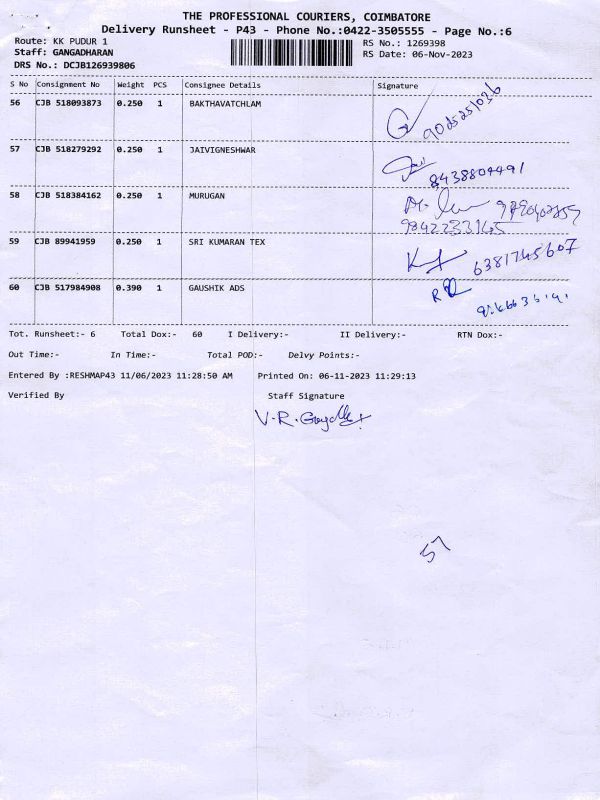 THE PROFESSIONAL COURIERS, COIMBATORE
Delivery Runsheet - P43 - Phone No.:0422-3505555 - Page No.:6
Route: KK PUDUR 1
RS No.: 1269398
Staff: GANGADHARAN
RS Date: 06-Nov-2023
DRS No.: DCJB126939806
S No Consignment No Weight PCS Consignee Details Signature
56 CJB 518093873 0.250 1 BAKTHAVATCHLAM
57 CJB 518279292 0.250 1 JAIVIGNESHWAR
8438804491
58 CJB 518384162 0.250 1 MURUGAN
9842233145
59 CJB 89941959 0.250 1 SRI KUMARAN TEX
6381745607
60 CJB 517984908 0.390 1 GAUSHIK ADS
Tot. Runsheet:- 6 Total Dox:- 60 I Delivery:- II Delivery:- RTN Dox:-
Out Time:- In Time:- Total POD:- Delvy Points:-
Entered By :RESHMAP43 11/06/2023 11:28:50 AM Printed On: 06-11-2023 11:29:13
Verified By Staff Signature
V.R.
57